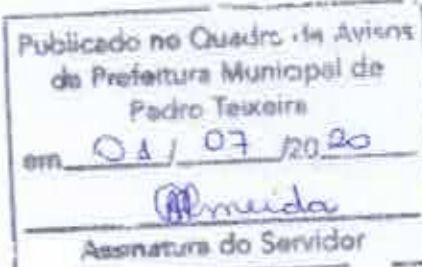 Publicado no Quadro de Avisos
da Prefeitura Municipal de
Pedro Teixeira
em 01 / 07 /2020
Almeida
Assinatura do Servidor